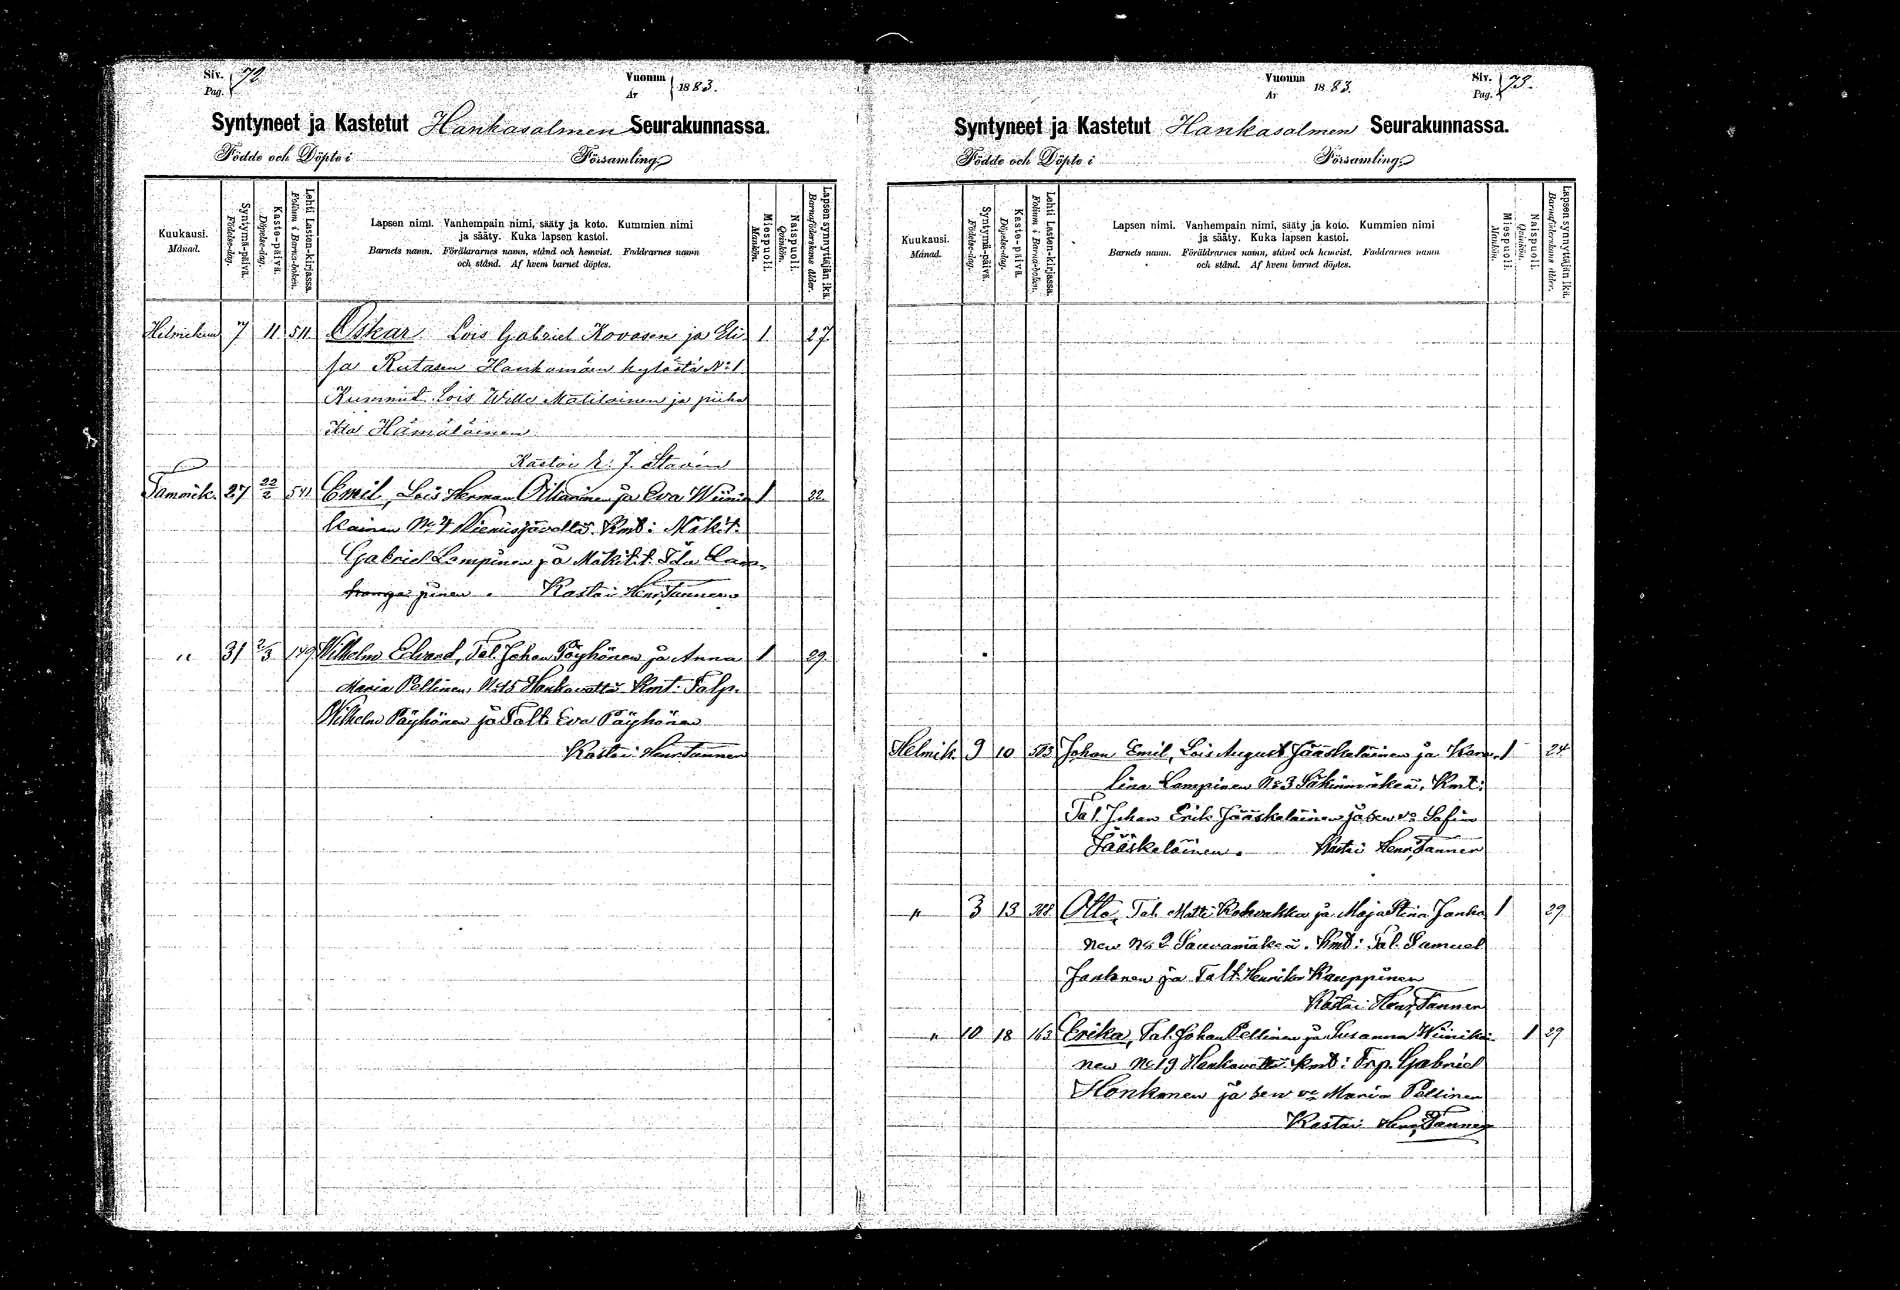 Siv. 72
Pag.
Vuonna 1883.
År
Syntyneet ja Kastetut Hankasalmen Seurakunnassa.
Födde och Döpte i Församling.
Kuukausi. Månad.
Syntymä-päivä. Födelse-dag.
Kaste-päivä. Döpelse-dag.
Lehti Lasten-kirjassa. Folium i Barna-boken.
Lapsen nimi. Vanhempain nimi, sääty ja koto. Kummien nimi
ja sääty. Kuka lapsen kastoi.
Barnets namn. Förälararnes namn, stånd och hemvist. Faddrarnes namn
och stånd. Af hvem barnet döptes.
Miespuoli. Mankön.
Naispuoli. Qvinkön.
Lapsen synnyttäjän ikä. Barnaföderskans ålder.
Helmikuu 7 11 511. Oskar. Lois Gabriel Kovasen ja Eli- 1 27.
sa Rutasen Hankamäen kylästä No 1.
Kummit Lois Wille Matilainen ja piika
Ida Hämäläinen
Kastoi J. Stavén
Tammik. 27 22/2 541 Emil, Lois Herman ja Eva Wiini- 1 22.
kainen No 4 Niemisjärveltä. Kmt: Mäkit.
Gabriel Lampinen ja Mäkitt. Ida Lam-
pinen. Kastoi Henr. Tanner
" 31 2/3 149 Wilhelm Edvard, Tal. Johan Pöyhönen ja Anna 1 29.
Maria Pellinen, No 15 Hankavettä. Kmt: Talp.
Wilhelm Päyhönen ja Talt. Eva Päyhönen
Kastoi Henr. Tanner
Vuonna 1883.
År
Siv. 73.
Pag.
Syntyneet ja Kastetut Hankasalmen Seurakunnassa.
Födde och Döpte i Församling.
Kuukausi. Månad.
Syntymä-päivä. Födelse-dag.
Kaste-päivä. Döpelse-dag.
Lehti Lasten-kirjassa. Folium i Barna-boken.
Lapsen nimi. Vanhempain nimi, sääty ja koto. Kummien nimi
ja sääty. Kuka lapsen kastoi.
Barnets namn. Föräldrarnes namn, stånd och hemvist. Faddrarnes namn
och stånd. Af hvem barnet döptes.
Miespuoli. Mankön.
Naispuoli. Qvinkön.
Lapsen synnyttäjän ikä. Barnaföderskans ålder.
Helmik. 9 10 Johan Emil, Lois August Jääskeläinen ja Karo- 1 24
lina Lampinen No 3 Säkinmäkeä. Kmt:
Tal. Johan Erik Jääskeläinen ja sen vo Sofia
Jääskeläinen. Kastoi Henr. Tanner
" 3 13 Otto, Tal. Matti Rahvakka ja Maja Stina Janho- 1 29
nen No 2 Sauvamäkeä. Kmt: Tal. Samuel
Janhonen ja Talt. Henrika Kauppinen
Kastoi Henr. Tanner
" 10 18 163 Erika, Tal. Johan Pellinen ja Susanna Wiinikai- 1 29
nen No 19 Hankavettä. Kmt: Trp. Gabriel
Honkonen ja sen vo Maria Pellinen
Kastoi Henr. Tanner